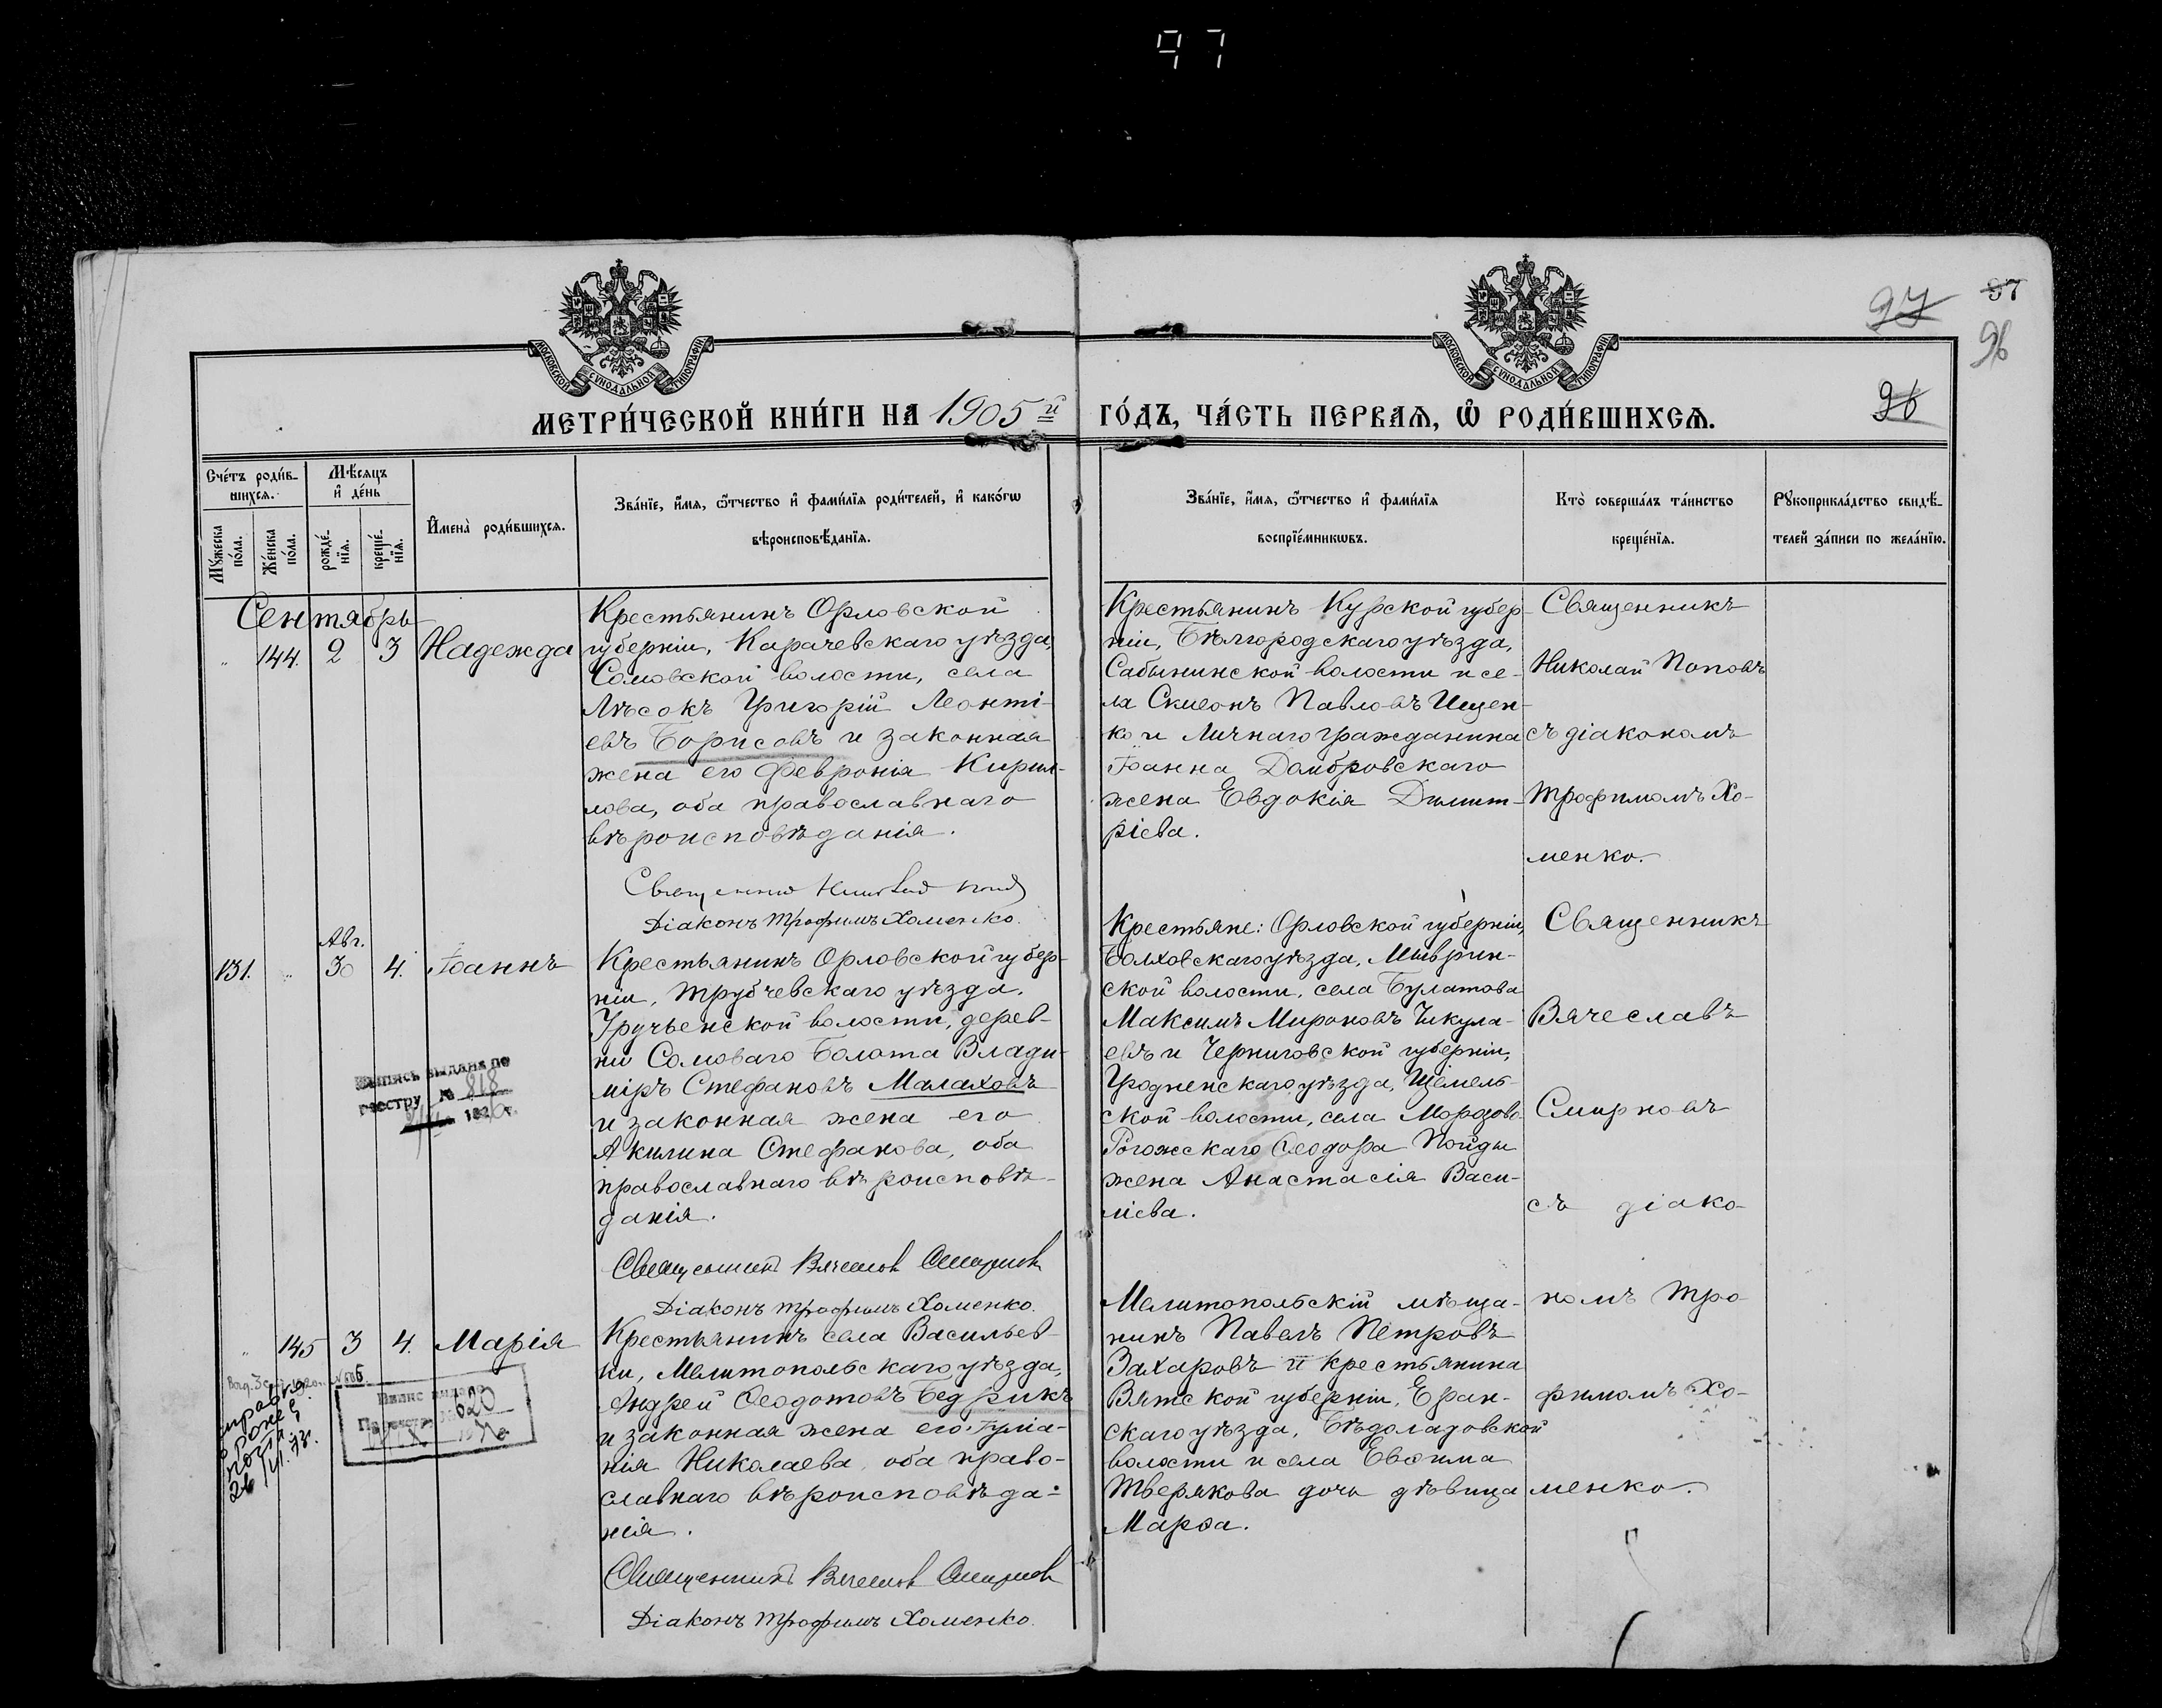 97
97
87
96
96
МОСКОВСКОЙ СУНОДАЛЬНОЙ ТИПОГРАФІИ
МОСКОВСКОЙ СУНОДАЛЬНОЙ ТИПОГРАФІИ
МЕТРИ́ЧЕСКОЙ КНИ́ГИ НА 1905 й ГО́ДЪ, ЧА́СТЬ ПЕРВАЯ, Ѿ РОДИ́ВШИХСѦ.
Сче́тъ роди́в-
шихсѧ.
Мѣ́сяцъ
и҆ де́нь
Мꙋ́жеска
по́ла.
Же́нска
по́ла.
рожде́-
нїѧ.
креще́-
нїѧ.
И҆мена̀ роди́вшихсѧ.
Зва́нїе, и҆́мѧ, ѻ҆́тчество и҆ фами́лїѧ роди́телей, и҆ како́гѡ
вѣроисповѣ́данїѧ.
Зва́нїе, и҆́мѧ, ѻ҆́тчество и҆ фами́лїѧ
воспрїе́мникѡвъ.
Кто̀ соверша́лъ та́инство
креще́нїѧ.
Рꙋкоприкла́дство свидѣ́-
телей за́писи по жела́нїю.
Сентябрь
„ 144. 2 3 Надежда
Крестьянинъ Орловской
губерніи, Карачевскаго уѣзда,
Сомовской волости, села
Лѣсокъ Григорій Леонті-
евъ Борисовъ и законная
жена его Февронія Кирил-
лова, оба православнаго
вѣроисповѣданія.
Діаконъ Трофимъ Хоменко.
Крестьянинъ Курской губер-
ніи, Бѣлгородскаго уѣзда,
Сабынинской волости и се-
ла Симеонъ Павловъ Ищен-
ко и Личнаго гражданина
Іоанна Домбровскаго
жена Евдокія Димит-
ріева.
Священникъ
Николай Поповъ
съ діакономъ
Трофимомъ Хо-
менко.
131. „ Авг. 30 4. Іоаннъ
Крестьянинъ Орловской губер-
ніи, Трубчевскаго уѣзда,
Уручьенской волости, дерев-
ни Сомоваго Болота Влади-
міръ Стефановъ Малаховъ
и законная жена его
Акилина Стефанова, оба
православнаго вѣроисповѣ-
данія.
Священникъ Вячеслав Смирнов
Діаконъ Трофимъ Хоменко.
Крестьяне: Орловской губерніи,
Болховскаго уѣзда,
ской волости, села Булатова
Максимъ Мироновъ Чикула-
евъ и Черниговской губерніи,
Гродненскаго уѣзда,
ской волости, села
Ѳеодора Пойды
жена Анастасія Васи-
ліева.
Священникъ
Вячеславъ
Смирновъ
съ діако-
номъ Тро-
фимомъ Хо-
менко.
выпись выдана по
реестру № 818
„ 145 3 4. Марія
Крестьянинъ села Васильев-
ки, Мелитопольскаго уѣзда,
Андрей Ѳеодотовъ Бедрикъ
и законная жена его Іуліа-
нія Николаева, оба право-
славнаго вѣроисповѣда-
нія.
Священникъ Вячеслав Смирнов
Діаконъ Трофимъ Хоменко.
Мелитопольскій мѣща-
нинъ Павелъ Петровъ
Захаровъ и крестьянина
Вятской губерніи, Еран-
скаго уѣзда,
волости и села Евѳима
Тверякова дочь дѣвица
Марѳа.
620